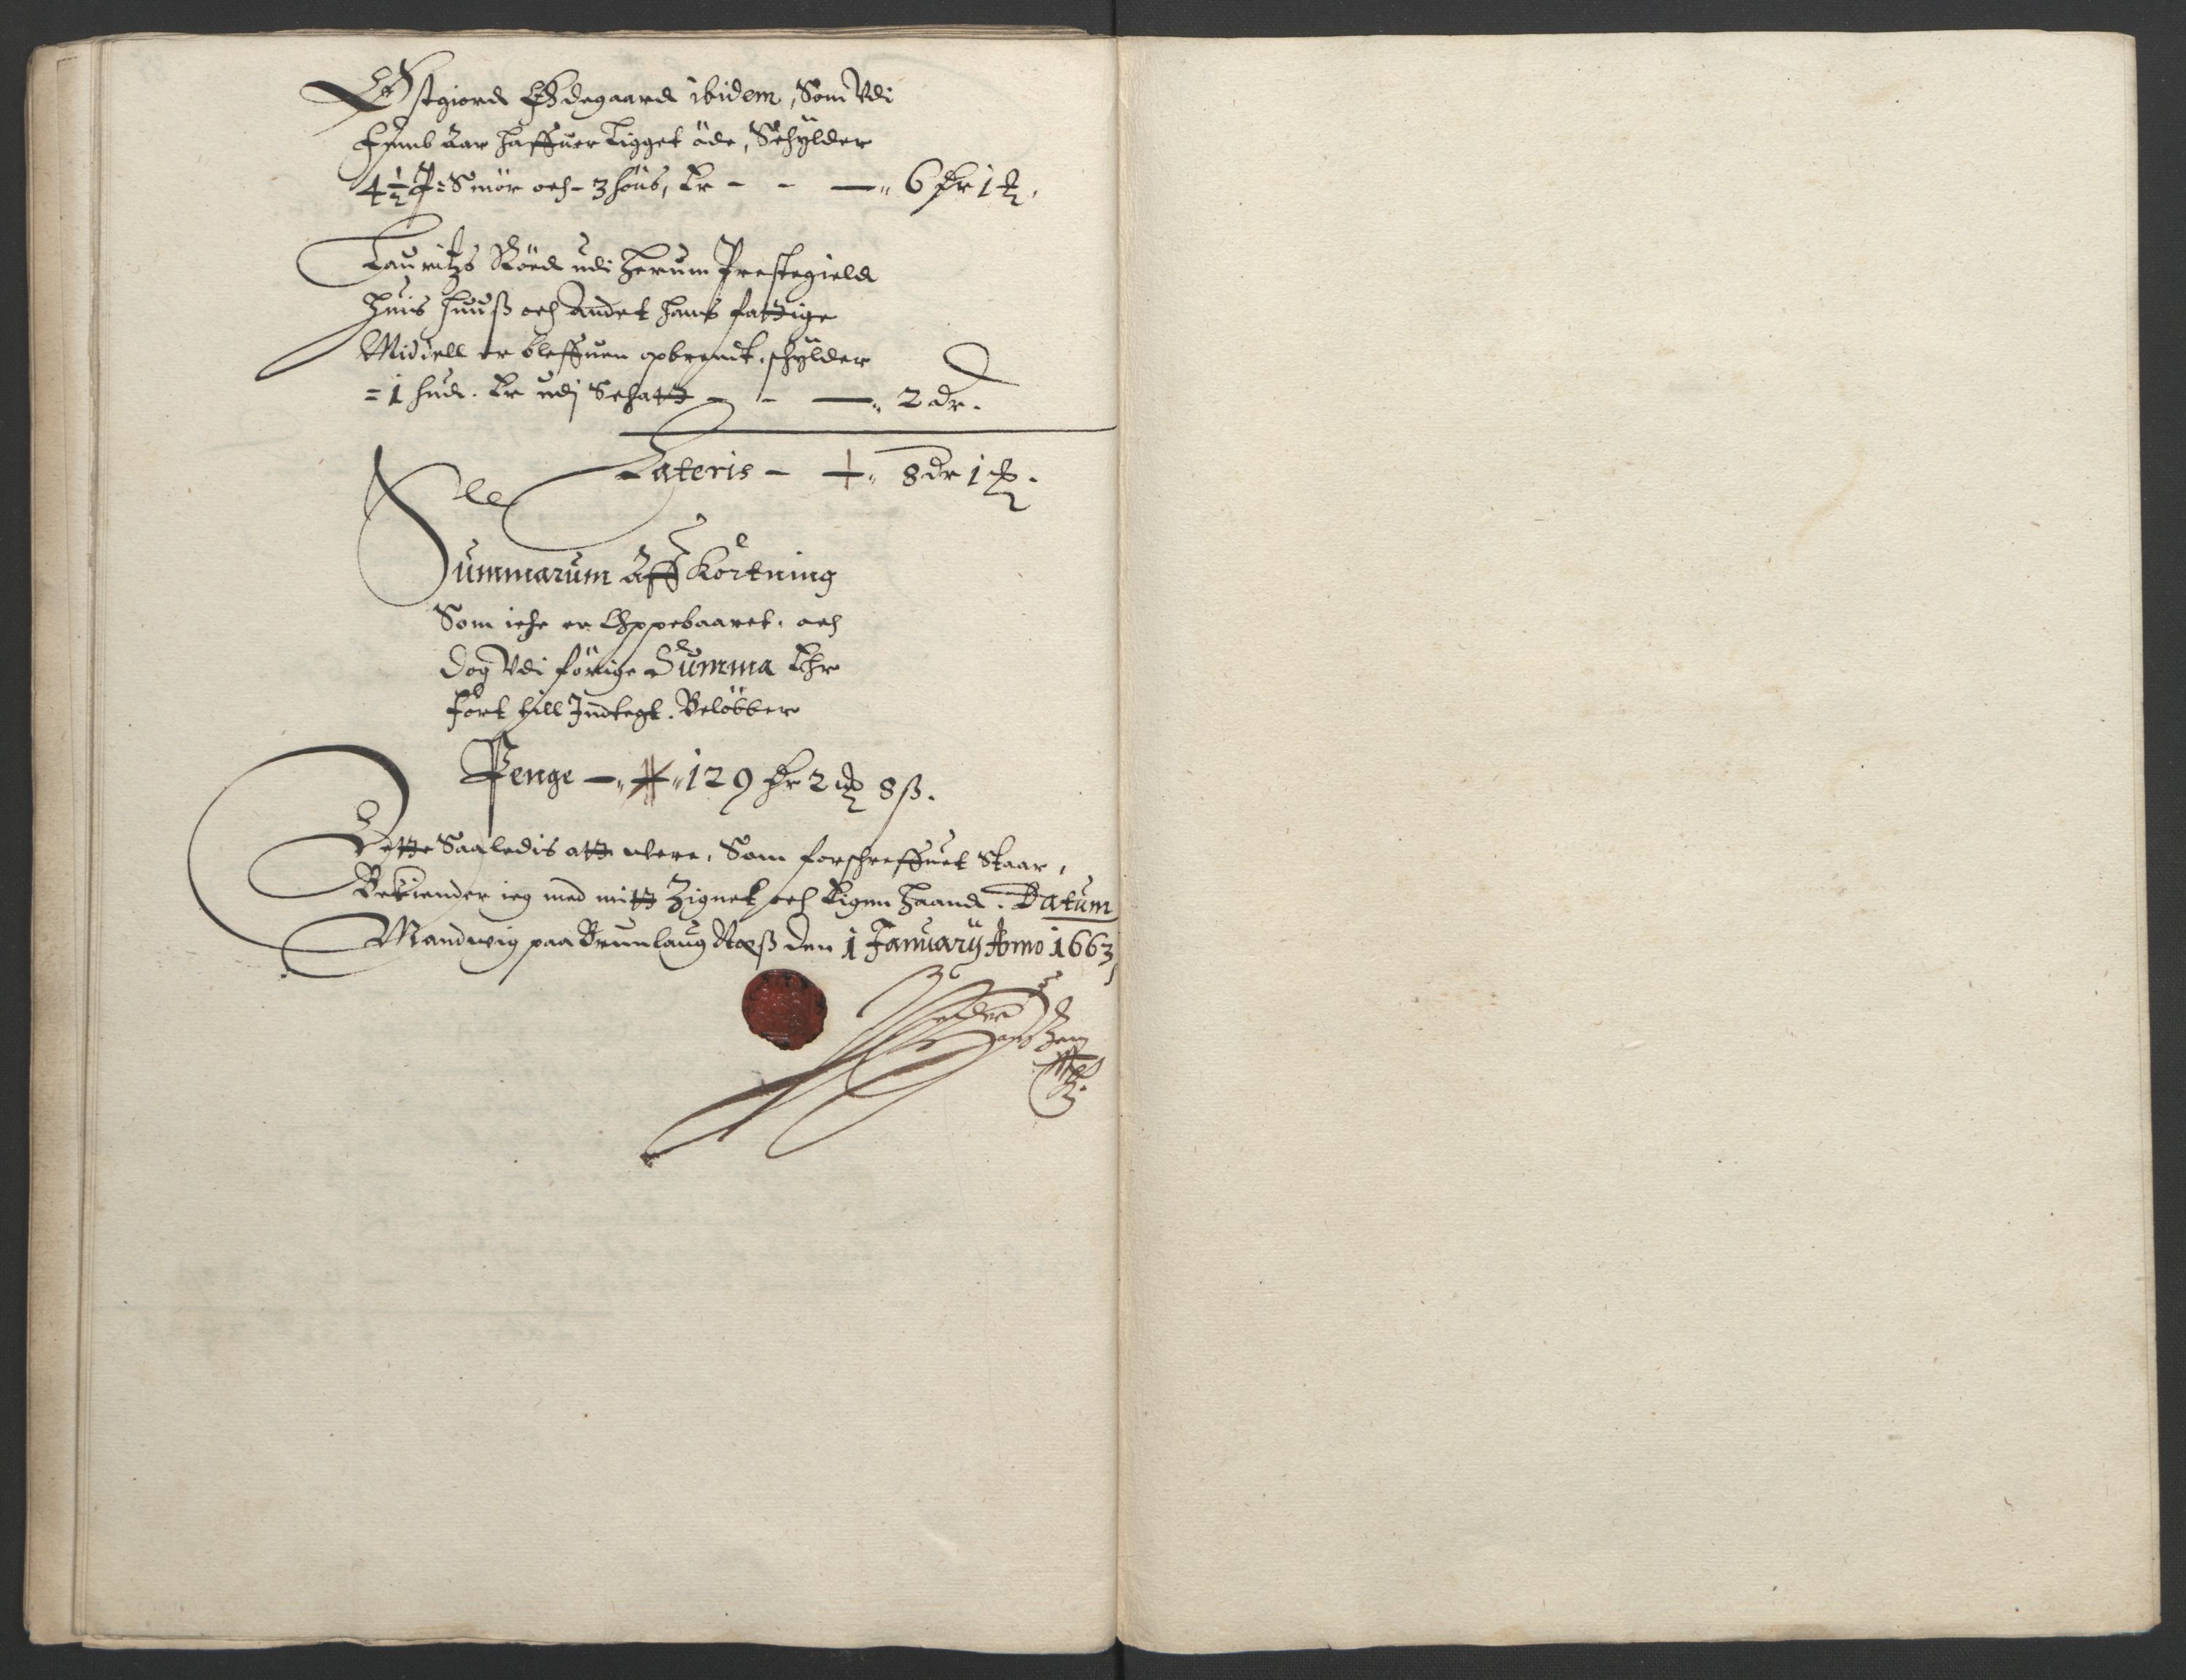 Østgiord Ødegaard ibidem, Som Udi
Femb Aar haffuer Ligget øde, Schylder
4½ ℔: Smör och - 3 Hüs, Er - - — 6 dr 1 ℔.
Lauritzs Röed udi Herum Prestegield
Huis Huuß och Andet hans fattige
Middell er bleffuen opbrendt. schylder
= 1 Hud. Er udj Schatt - - — 2 dr.
Lateris - 8 dr 1 ℔.
Summarum Aff Kortning
Som iche er Oppebaaret. och
Dog Udi förige Summa Ehr
fört till Indtegt. Belöbber
Penge — 129 dr 2 ℔ 8 ß.
Dette Saaledis att were, Som forschreffuet Staar,
Bekiender ieg med mitt Zignet och Eigen Haand. Datum
Mandwig paa Brunlaug Næß den 1 January Anno 1663